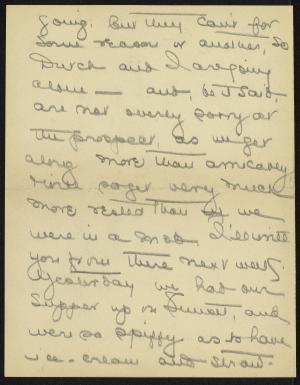 going. But they can't for
some reason or another, so
Dutch and I are going
alone — and, as I said,
are not overly sorry at
the prospect, as we get
along more than amicably
and get very much
more rested than we
were in a mob. I'll write
you from there next week.
Yesterday we had our
supper up in, and
were so spiffy as to have
ice-cream and straw-